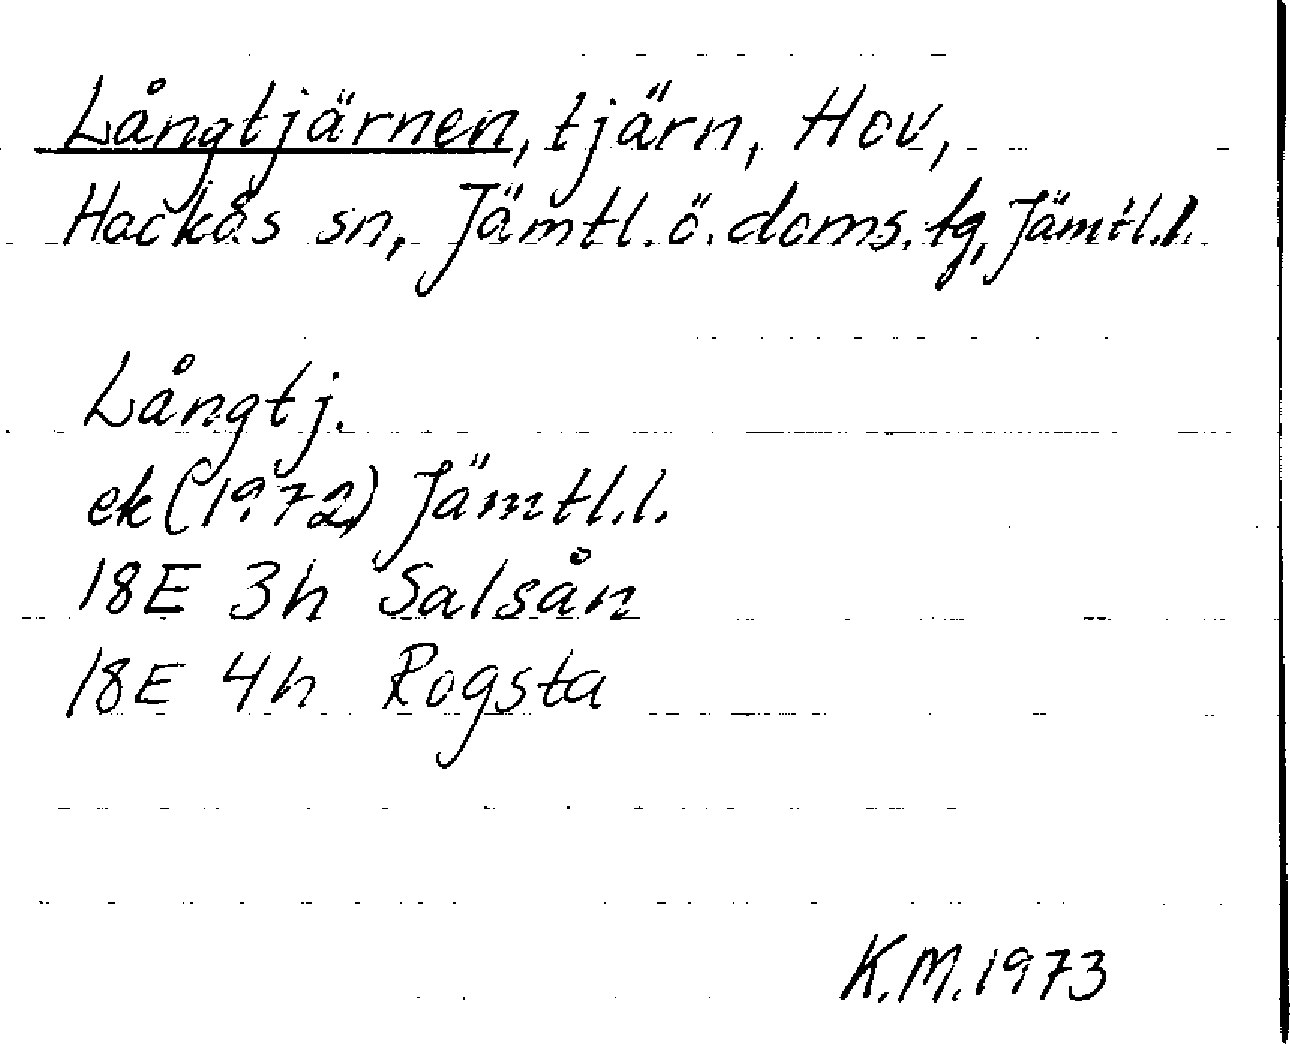 Långtjärnen, tjärn, Hov,
Hackås sn, Jämtl. ö. doms. tg, Jämtl.l.
Långtj.
ek (1972) Jämtl.l.
18E 3h Salsån
18E 4h Rogsta
K.M. 1973